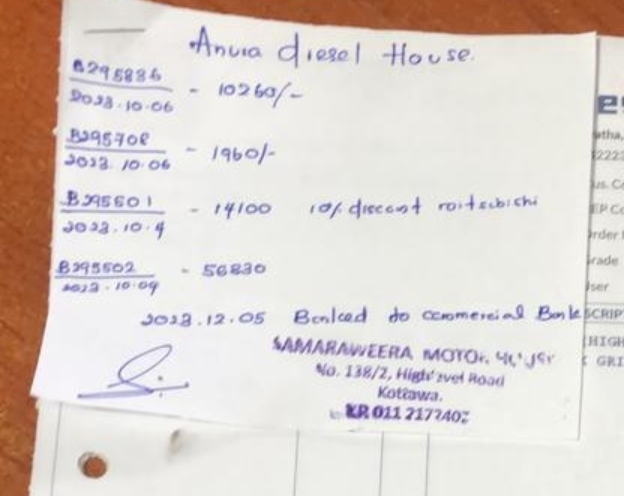 Anura diesel House.
B295836
2023.10.06 - 10260/-
B295708
2023.10.06 - 1960/-
B295501
2023.10.4 - 14100 10% discount
B295502
2023.10.04 - 56830
2023.12.05 Banked to commercial Bank
SAMARAWEERA MOTOR
No. 138/2, High Level Road
Kottawa.
011 217740
atha,
2222
us. Co
EP Co
rder
rade
ser
SCRIPT
HIGH
GRI